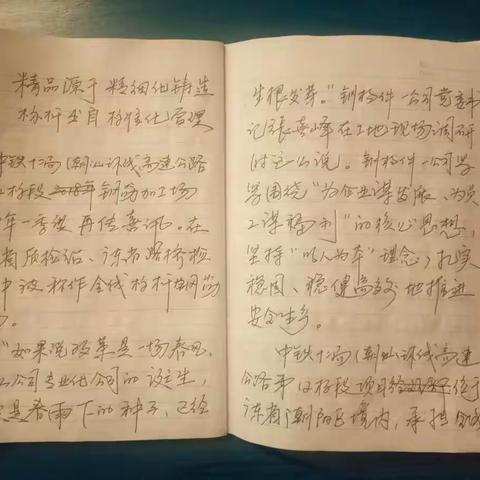 精品源于精细化铸造
标杆出自标准化管理
中铁十二局(潮汕环线高速公路
标段 钢筋加工场
年一季度再传喜讯。在
质检站、
中被称作全线标杆钢筋
"如果说改革是一场春风,
公司专业化公司的诞生,
是春雨下的种子,已经
生根发芽。"钢构件一公司党委书
记张喜峰在工地现场调研
时这么说。钢构件一公司紧
紧围绕"为企业谋发展、为员
工谋福利"的核心思想,
坚持"以人为本"理念,扎实
稳固、稳健高效地推进
安全生产。
中铁十二局(潮汕环线高速
公路第 标段项目 位于
东省潮阳区境内,承担全线